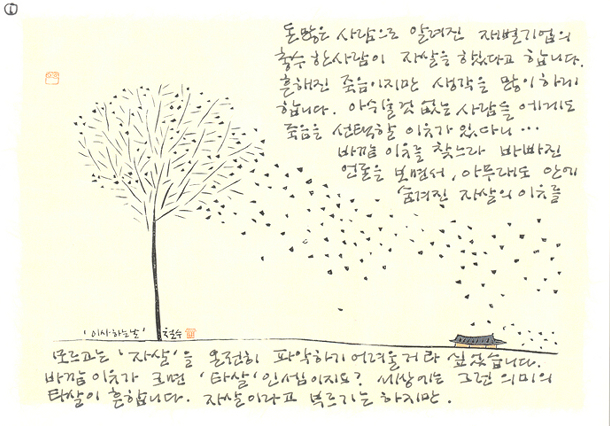 ①
돈많은 사람으로 알려진 재벌기업의
총수 한사람이 자살을 했다고 합니다.
흔해진 죽음이지만 생각을 많이 하게
합니다. 아쉬울것 없는 사람들에게도
죽음을 선택할 이유가 있다니…
바깥 이유를 찾느라 바빠진
언론을 보면서, 아무래도 안에
숨겨진 자살의 이유를
'이사하는날' 철수
모르고는 '자살'을 온전히 파악하기 어려울거라 싶었습니다.
바깥이유가 크면 '타살'인셈이지요? 세상에는 그런 의미의
타살이 흔합니다. 자살이라고 부르기는 하지만.